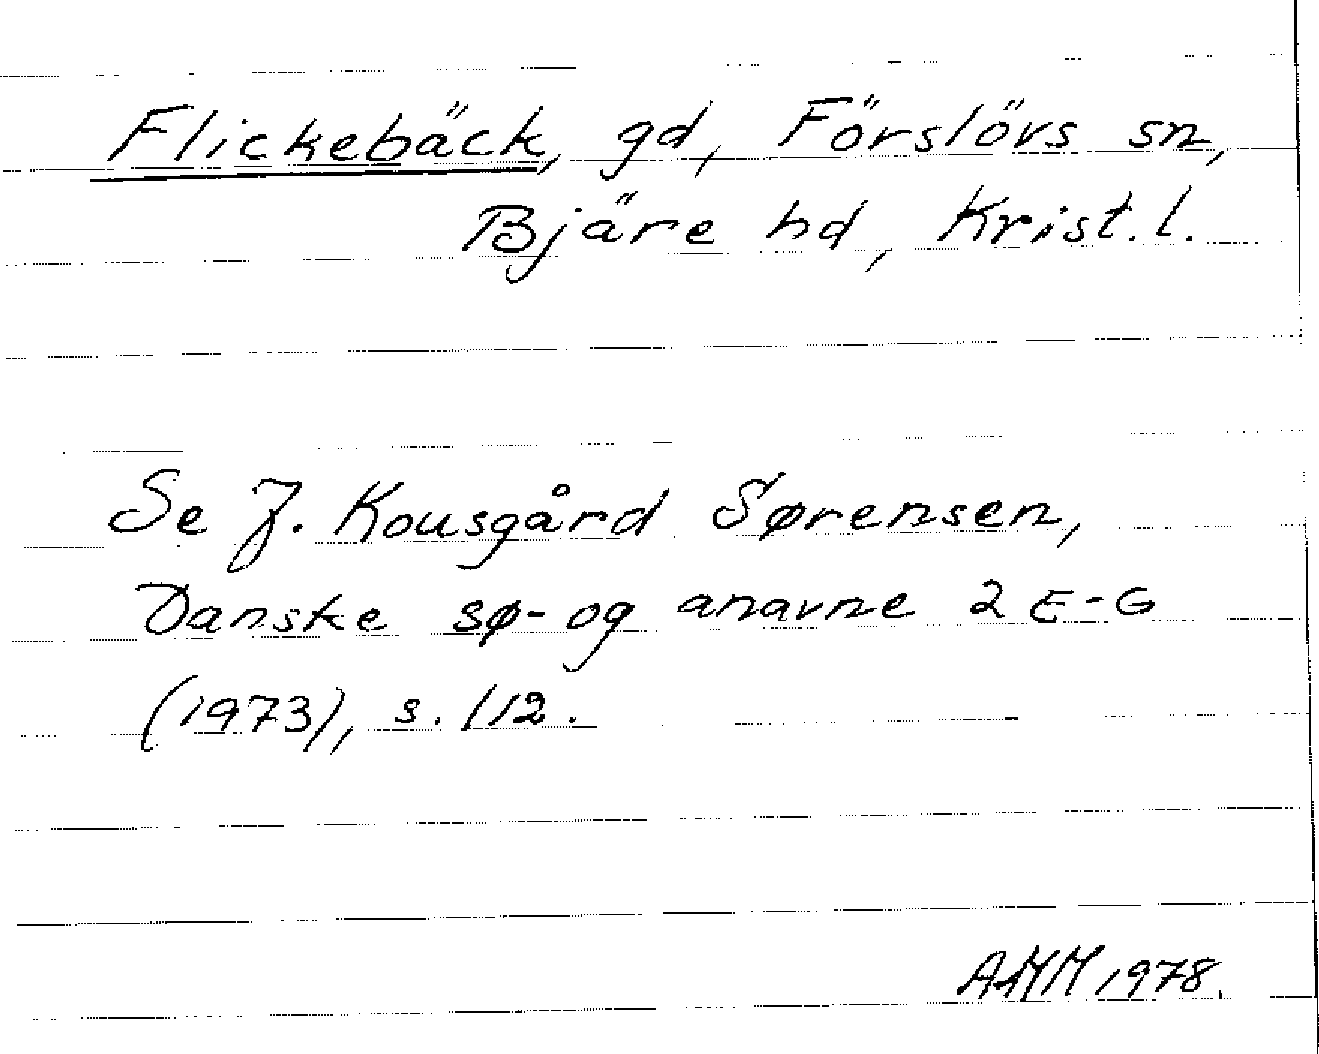 Flickebäck, gd, Förslövs sn,
Bjäre hd, Krist. l.
Se J. Kousgård Sørensen,
Danske sø- og ånavne 2 E-G
(1973), s. 112.
AMM 1978.